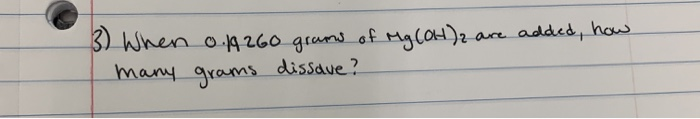 3) When 0.19260 grams of Mg(OH)2 are added, how
many grams dissave?